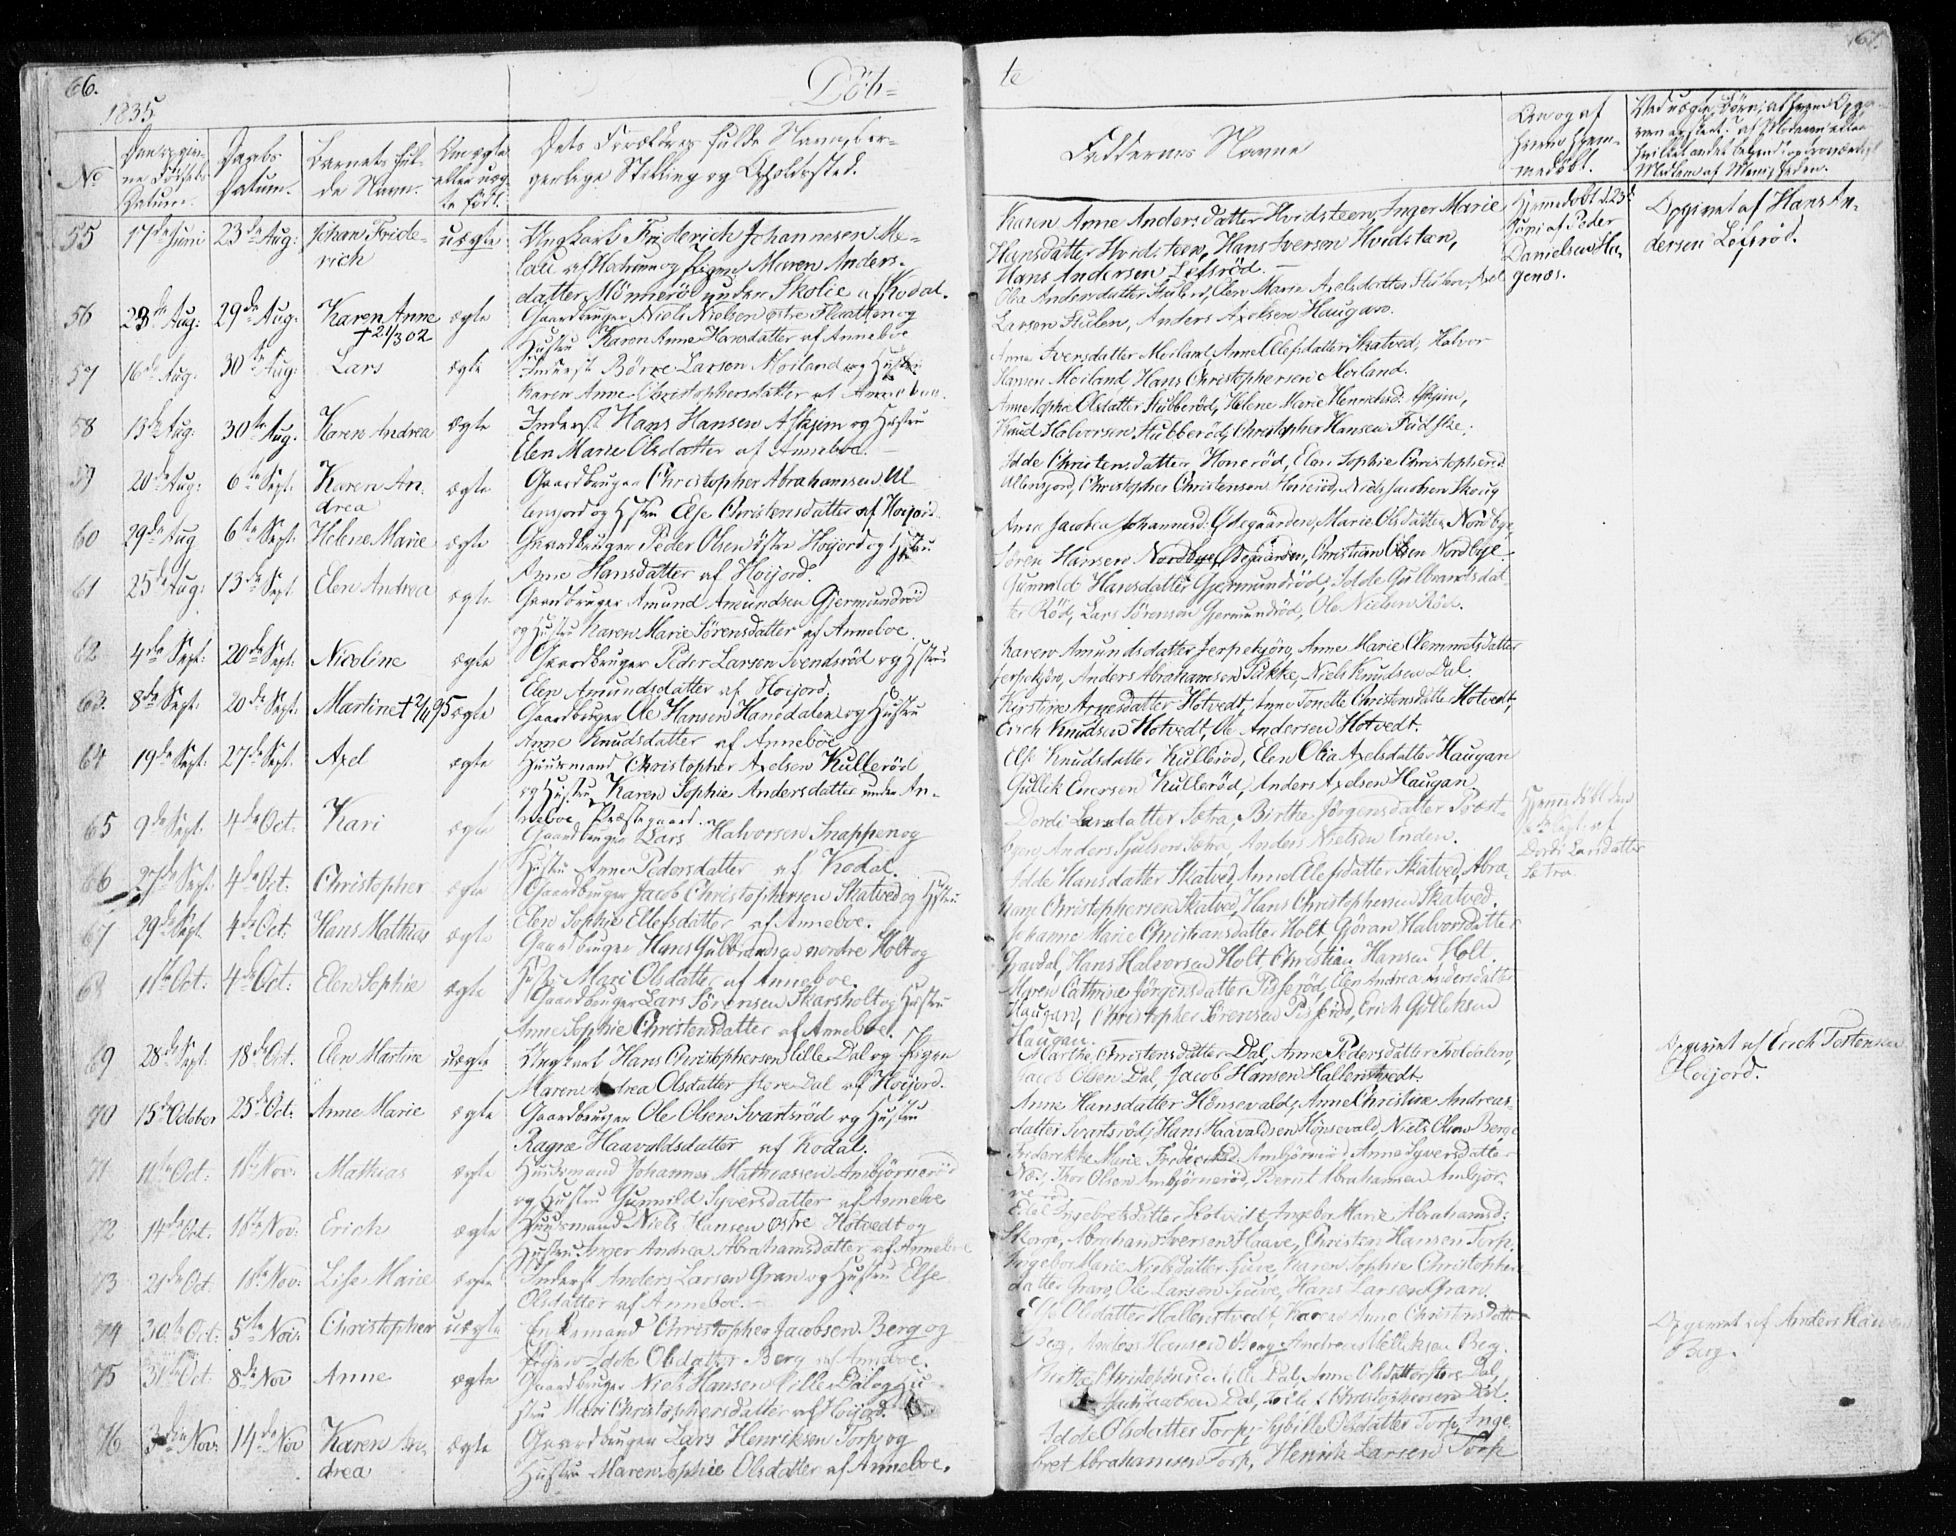 66.
Döb=
te
67.
1835
No
Den egin-
ne Födsels
Datum.
Daabs
Datum.
Barnets ful-
de Navn.
Om ægte
eller uæg-
te födt.
Dets Forældres fulde Navn, bor-
gerlige Stilling og Opholdssted.
Faddernes Navne
Om og af
hvem hjem-
medöbt.
55 17de Juni 23de Aug: Johan Fride-
rich uægte Ungkarl Friderich Johannesen Me-
lau af Hedrum og Pigen Maren Anders-
datter Mönneröd under Skolie af Kodal.
Karen Anne Andersdatter Hvidsteen, Inger Marie
Hansdatter Hvidsteen, Hans Iversen Hvidsteen,
Hans Andersen Löfsröd.
Hjemedöbt d. 23de
Juni af Peder
Danielsen Ha-
genæs.
Opgivet af Hans An-
dersen Löfsröd.
56 23de Aug: 29de Aug: Karen Anne
† 21/3 02 ægte Gaardbruger Niels Nielsen östre Hvatten og
Hustru Karen Anne Hansdatter af Anneboe
Olia Andersdatter Stulen, Elen Marie Axelsdatter Stulen, Axel
Larsen Stulen, Anders Axelsen Haugan.
57 16de Aug: 30te Aug: Lars ægte Inderst Börre Larsen Moiland og Hustru
Karen Anne Christophersdatter af Anneboe.
Anne Iversdatter Moiland, Anne Ellefsdatter Skatved, Halvor
Hansen Moiland, Hans Christophersen Moiland.
58 13de Aug: 30te Aug. Karen Andrea ægte Inderst Hans Hansen Askjem og Hustru
Elen Marie Olsdatter af Anneboe.
Anne Sophie Olsdatter Stubberöd, Helene Marie Henriksd: Askjem,
Knud Halvorsen Stubberöd, Christopher Hansen Fadske.
59 20de Aug: 6te Sept. Karen An-
drea ægte Gaardbruger Christopher Abrahamsen Ul-
lensjord og Hstru Else Christensdatter af Hoijord
Idde Christensdatter Honeröd, Elen Sophie Christophersd.
Ullensjord, Christopher Christensen Honeröd, Niels Jacobsen Skoug
60 29de Aug 6te Sept. Helene Marie ægte Gaardbruger Peder Olsen östre Hoijord og Hstru
Anne Hansdatter af Hoijord.
Anne Jacobea Johannesd. Ödegaarden, Marie Olsdatter Nordbye,
Sören Hansen Nordbye Ödegaarden, Christian Olsen Nordbye
61 25de Aug: 13de Sept Elen Andrea ægte Gaardbruger Amund Amundsen Gjermundröd
og Hustru Karen Marie Sörensdatter af Anneboe.
Gunnild Hansdatter Gjermundröd, Idde Gulbrandsdat
ter Röd, Lars Sörensen Gjermundröd, Ole Nielsen Röd.
62 4de Sept: 20de Sept: Nicoline ægte Gaardbruger Peder Larsen Svendsröd og Hstru
Elen Amundsdatter af Hoijord
Karen Amundsdatter Jerpekjön, Anne Marie Clemmetsdatter
Jerpekjön, Anders Abrahamsen Sukke, Niels Knudsen Dal
63. 8de Sept: 20de Sept: Martine † 2/11 95 ægte Gaardbruger Ole Hansen Hanedalen og Hustru
Anne Knudsdatter af Anneböe
Kirstine Arnesdatter Hotvedt, Anne Tonette Christensdatter Hotvedt,
Erich Knudsen Hotvedt, Ole Andersen Hotvedt.
64 19de Sept: 27de Sept. Axel ægte Huusmand Christopher Axelsen Kulleröd
og Hustru Karen Sophie Andersdatter under An-
neboe Præstegaard.
Else Knudsdatter Kulleröd, Elen Olia Axelsdatter Haugan
Gullik Eversen Kulleröd, Anders Axelsen Haugan
65 9de Sept: 4de Oct. Kari ægte Gaardbruger Lars Halvorsen Snappen og
Hustru Anne Pedersdatter af Kodal.
Dordi Larsdatter Sætra, Birthe Jörgensdatter Svart-
Anders Nielsen Enden.
Hjemedöbt den
Dordi Larsdatter
Sætra
66 27de Sept: 4de Oct: Christopher ægte Gaardbruger Jacob Christophersen Skatved og Hstru
Elen Sophie Ellefsdatter af Anneboe.
Idde Hansdatter Skatved, Anne Ellefsdatter Skatved, Abra-
ham Christophersen Skatved, Hans Christophersen Skatved.
67 29de Sept. 4de Oct. Hans Mathias ægte Gaardbruger Hans Gulbrandsen nordre Holt og
Hstru Mari Olsdatter af Anneboe.
Johanne Marie Christiansdatter Holt, Göran Halvorsdatter
Gravdal, Hans Halvorsen Holt, Christian Hansen Holt.
68 1ste Oct: 4de Oct: Elen Sophie ægte Gaardbruger Lars Sörensen Skarsholt og Hustru
Anne Sophie Christensdatter af Anneboe.
Maren Cathrine Jörgensdatter Pisseröd, Elen Andrea Andersdatter
Haugan, Christopher Sörensen Pisseröd, Erich Gulliksen
Haugan.
69 28de Sept. 18de Oct. Elen Martine uægte Ungkarl Hans Christophersen lille Dal og Pigen
Maren Andrea Olsdatter store Dal af Hoijord.
Marthe Christensdatter Dal, Anne Pedersdatter
Jacob Olsen Dal, Jacob Hansen Hallenstvedt.
Opgivet af Erich Torstensen
Hoijord.
70 15de October 25de Oct: Anne Marie ægte Gaardbruger Ole Olsen Svartsröd og Hustru
Ragne Haavaldsdatter af Kodal.
Anne Hansdatter Hönsevald, Anne Christine Andreas-
datter Svartsröd, Hans Haavaldsen Hönsevald, Niels Olsen Berge
71 11te Oct: 1ste Nov: Mathias ægte Huusmand Johannes Mathiassen Anbjörneröd
og Hustru Gunnild Syversdatter af Anneboe
Friderikke Marie Fridericksd. Anbjörneröd, Anne Syversdatter
Næs, Thor Olsen Anbjörneröd, Bernt Abrahamsen Anbjör-
neröd
72 14de Oct. 1ste Nov: Erich ægte Huusmand Niels Hansen östre Hotvedt og
Hustru Inger Andrea Abrahamsdatter af Anneboe
Edel Ingebretsdatter Hotvedt, Ingebor Marie Abrahamsd:
Skorge, Abraham Iversen Haave, Christen Hansen Torp.
73 21de Oct. 1ste Nov: Lise Marie ægte Inderst Anders Larsen Gran og Hustru Else
Olsdatter af Anneboe.
Ingebor Marie Nielsdatter Sjuve, Karen Sophie Christopher-
datter Gran, Ole Larsen Sjuve, Hans Larsen Gran.
74 30te Oct: 5te Nov: Christopher uægte Enkemand Christopher Jacobsen Berg og
Pigen Idde Olsdatter Berg af Anneboe.
Else Olsdatter Hallenstvedt, Karen Anne Christensdatter
Berg, Anders Hansen Berg, Andreas Berg.
Opgivet af Anders Hansen
Berg.
75 31te Oct: 8de Nov Anne ægte Gaardbruger Niels Hansen lille Dal og Hu-
stru Mari Christophersdatter af Hoijord.
Birthe Christophersd: lille Dal, Anne Olsdatter store Dal,
Jacobsen Dal, Christophersen Dal.
76 3die Nov: 14de Nov Karen An-
drea ægte Gaardbruger Lars Henriksen Torp og
Hustru Maren Sophie Olsdatter af Anneboe.
Idde Olsdatter Torp, Sybille Olsdatter Torp, Inge-
bret Abrahamsen Torp, Henrik Larsen Torp